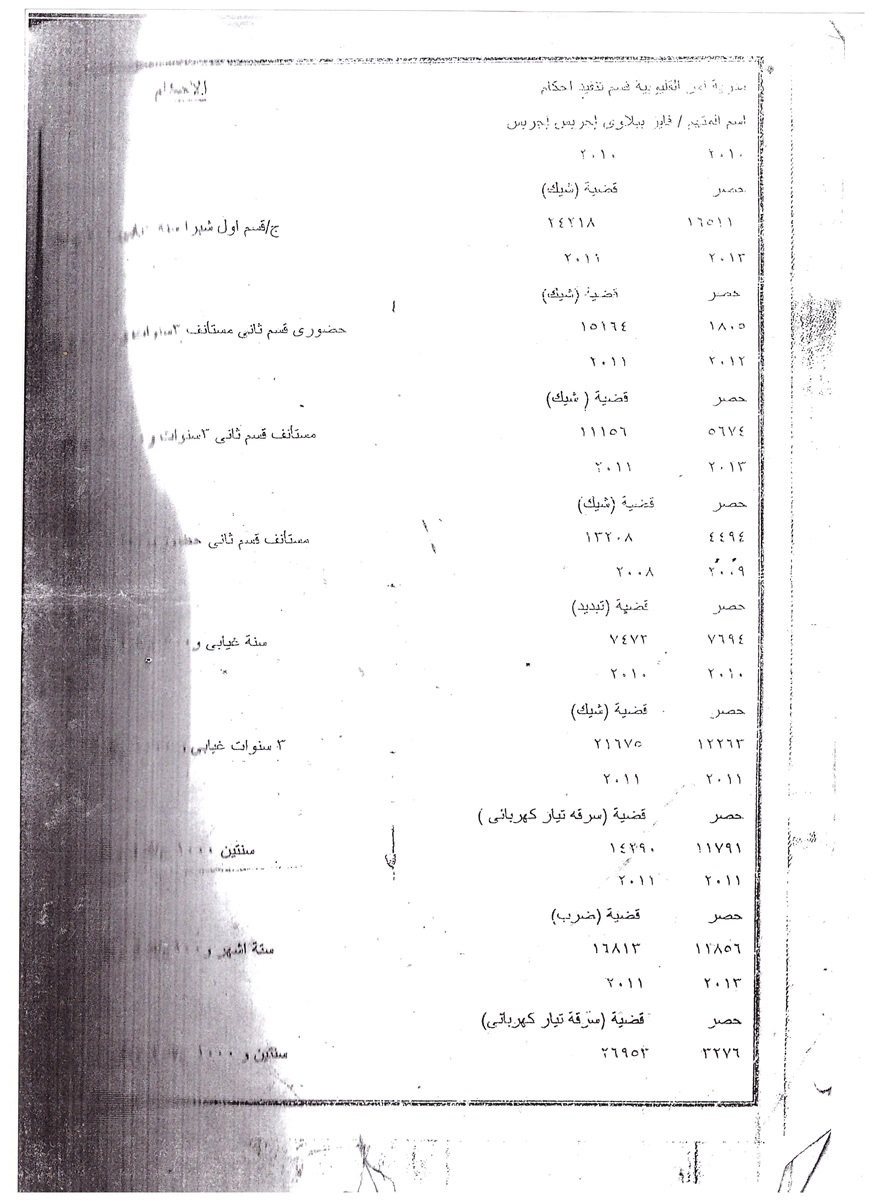 مديرية امن القليوبية قسم تنفيذ احكام الاحكام
اسم المتهم / فايز ببلاوى إجريس إجريس
٢٠١٠ ٢٠١٠
حصر قضية (شيك)
١٦٥١١ ٢٤٢١٨ ج/قسم اول شبرا
٢٠١٣ ٢٠١١
حصر قضية (شيك)
١٨٠٥ ١٥١٦٤ حضورى قسم ثانى مستأنف ٣سنوات
٢٠١٢ ٢٠١١
حصر قضية ( شيك)
٥٦٧٤ ١١١٥٦ مستأنف قسم ثانى ٣سنوات و
٢٠١٣ ٢٠١١
حصر قضية (شيك)
٤٤٩٤ ١٣٢٠٨ مستأنف قسم ثانى
٢٠٠٩ ٢٠٠٨
حصر قضية (تبديد)
٧٦٩٤ ٧٤٧٣ سنة غيابى و
٢٠١٠ ٢٠١٠
حصر قضية (شيك)
١٢٢٦٣ ٢١٦٧٥ ٣ سنوات غيابى
٢٠١١ ٢٠١١
حصر قضية (سرقه تيار كهربائى )
١١٧٩١ ١٤٢٩٠ سنتين ١٠٠٠
٢٠١١ ٢٠١١
حصر قضية (ضرب)
١٢٨٥٦ ١٦٨١٣ ستة اشهر و
٢٠١٣ ٢٠١١
حصر قضية (سرقة تيار كهربائى)
٣٢٧٦ ٢٦٩٥٣ سنتين و ١٠٠٠